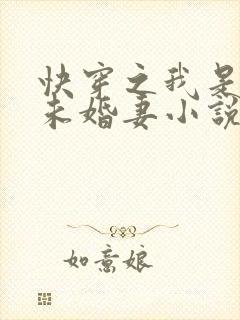 快穿之我是
未婚妻小說
如意娘